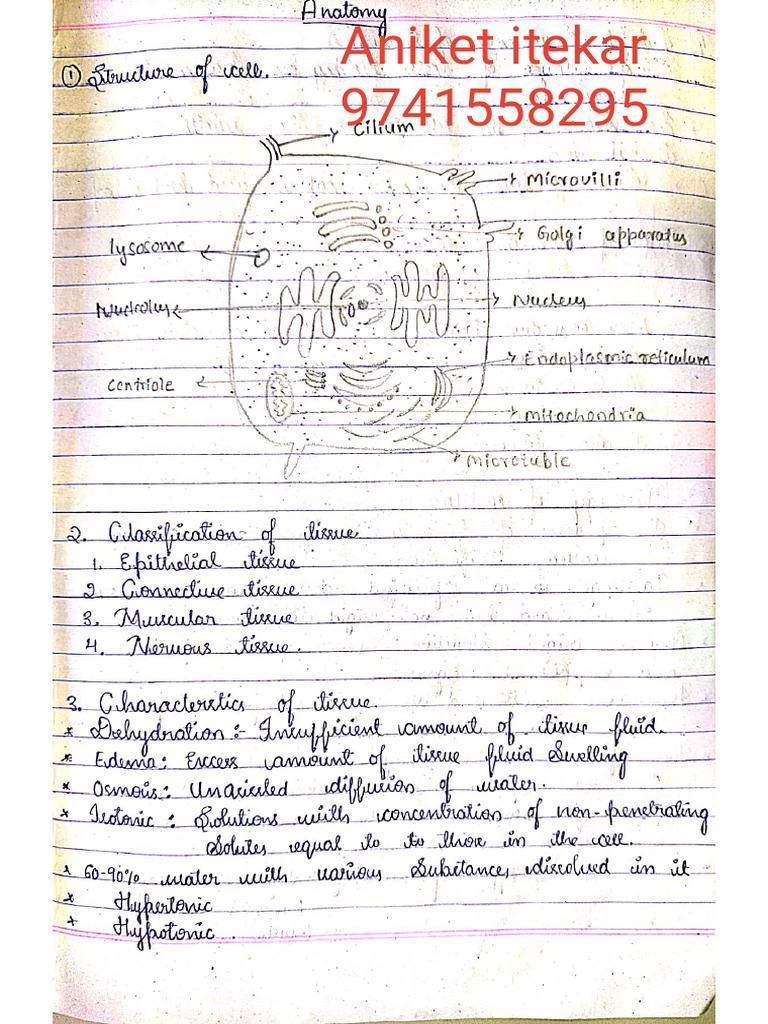 Anatomy
Aniket itekar
9741558295
① Structure of cell.
Cilium
Microvilli
Golgi apparatus
lysosome
Nucleus
Nucleolus
Endoplasmic reticulum
Centriole
Mitochondria
microtuble
2. Classification of tissue
1. Epithelial tissue
2. Connective tissue
3. Muscular tissue
4. Nervous tissue.
3. Characterstics of tissue.
* Dehydration :- Insufficient amount of tissue fluid.
* Edema : Excess amount of tissue fluid Swelling
* Osmosis : Unaided diffusion of water.
* Isotonic : Solutions with concentration of non-penetrating
Solutes equal to to those in the cell.
* 60-90% water with various Substances disolved in it
* Hypertonic
* Hypotonic .